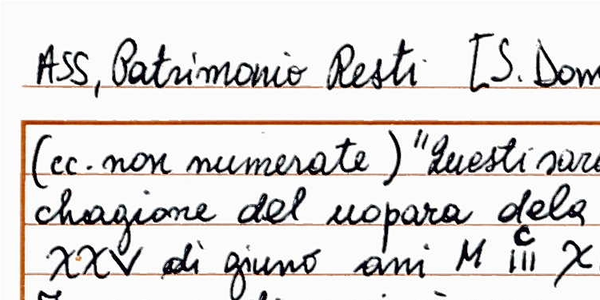 ASS, Patrimonio Resti [S. Dom
(cc. non numerate) "Questi sar
chagione del uopara dela
XXV di giuno ani M iii^c X.